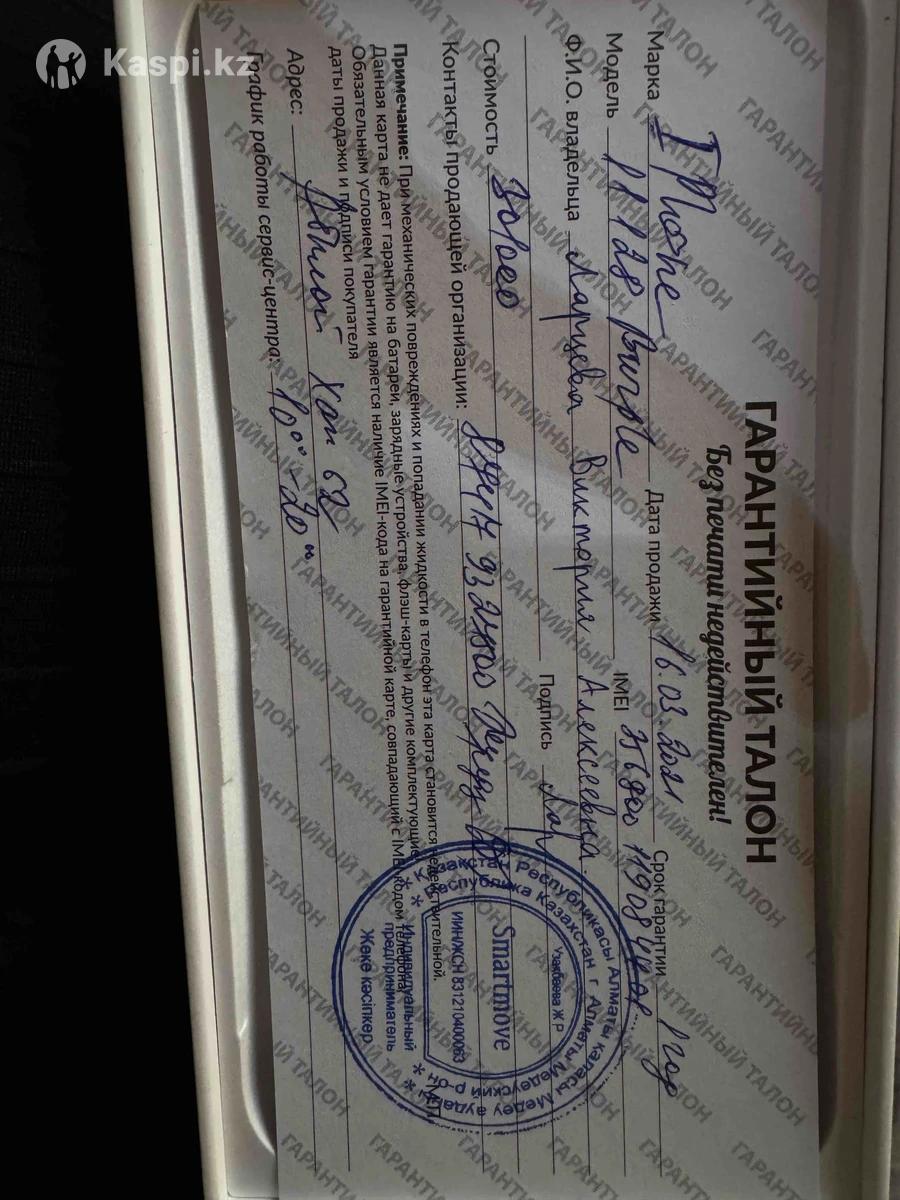 Kaspi.kz
ГАРАНТИЙНЫЙ ТАЛОН
Без печати недействителен!
Марка IPhone Дата продажи 16.03.2021 Срок гарантии 1 год
Модель 11 128 White IMEI
Ф.И.О. владельца Ларцева Виктория Алексеевна
Подпись Лар
Стоимость
Контакты продающей организации:
Примечание: При механических повреждениях и попадании жидкости в телефон эта карта становится недействительной.
Данная карта не дает гарантию на батарей, зарядные устройства, флэш-карты и другие комплектующие
Обязательным условием гарантии является наличие IMEI-кода на гарантийной карте, совпадающий с IMEI кодом телефона,
даты продажи и подписи покупателя
Адрес:
График работы сервис-центра: 10°° - 20°°
Қазақстан Республикасы Алматы қаласы Медеу ауданы
Республика Казахстан г. Алматы Медеуский р-он
Узакбаева Ж Р
Smartmove
ИИН/ЖСН 831210400063
Индивидуальный
предприниматель
Жеке кәсіпкер